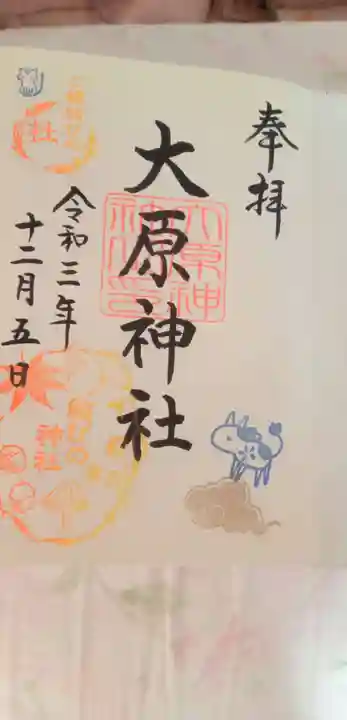 奉拝
大原神社
令和三年
十二月五日
神社